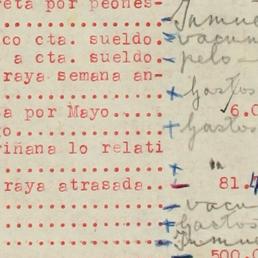 reta por peones-
co cta. sueldo. vacun
a cta. sueldo. pelo
raya semana an-
+ Gastos
a por Mayo... 6.0
o + Gastos
riñana lo relati
+
raya atrasada.. - 81.4
- vacu
+ Gastos
500.0